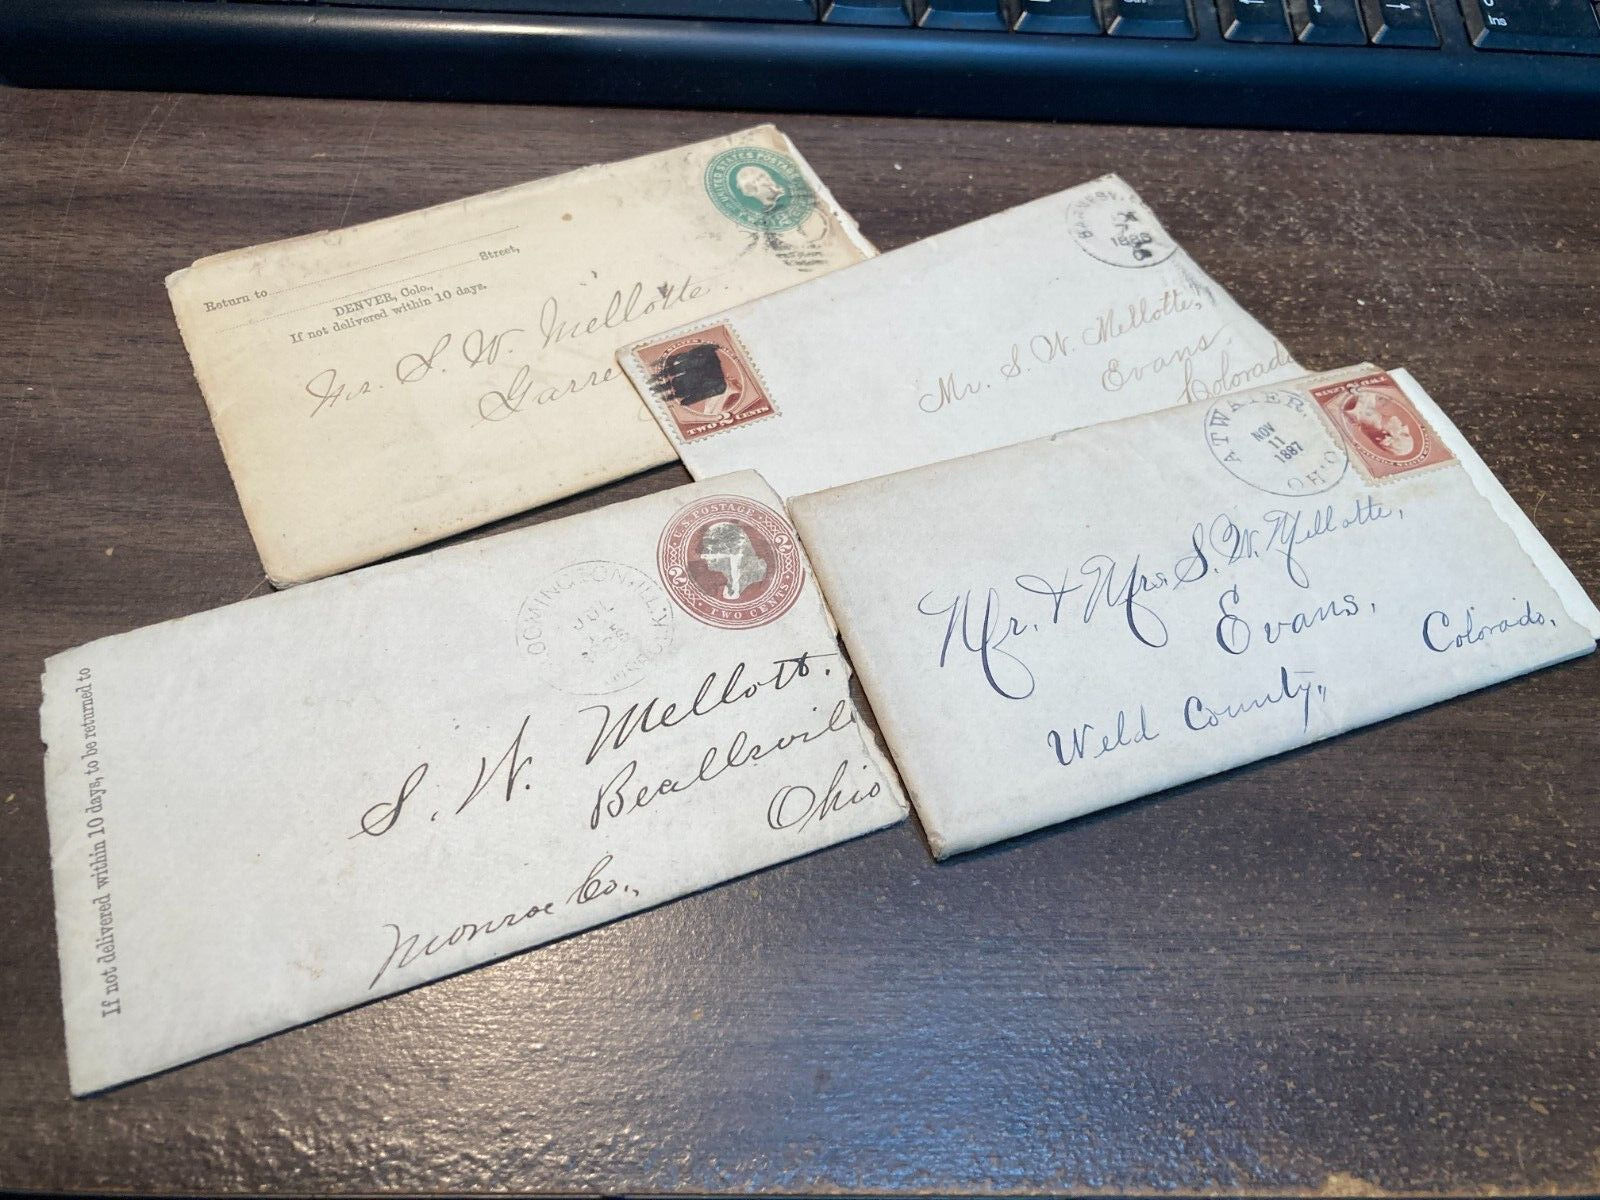 Ins
UNITED STATES POSTAGE
Street,
Return to
DENVER, Colo.,
If not delivered within 10 days.
Mr. S. W. Mellotte.
1888
TWO 2 CENTS
Mr. S. W. Mellotte,
Evans.
Colorado
ATWATER,
OHIO
NOV
11
1887
TWO CENTS
Mr. & Mrs. S. W. Mellotte,
Evans,
Colorado,
Weld County,
U.S. POSTAGE
2 2
TWO CENTS
JUL
S. W. Mellott.
Beallsvill
Ohio
Monroe Co.,
If not delivered within 10 days, to be returned to